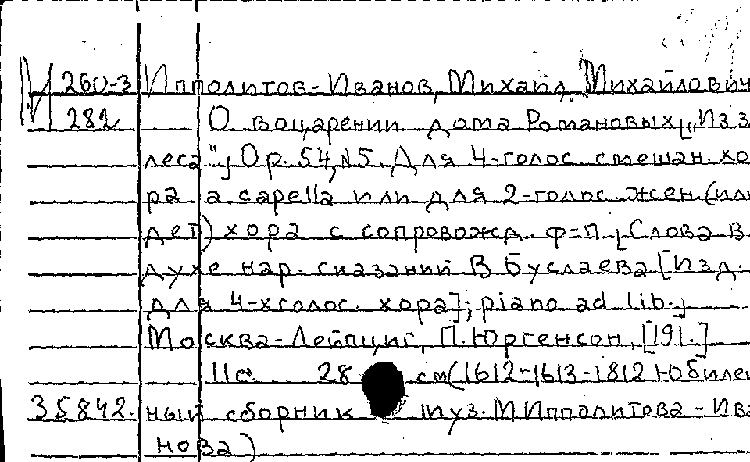 М 260-3 Ипполитов-Иванов, Михаил Михайлович
282 О воцарении дома Романовых („Из з
леса"). Ор. 54, №5. Для 4-голос. смешан. хо-
ра a capella или для 2-голос. жен. (или
дет.) хора с сопровожд. ф=п. [Слова В
духе нар. сказаний В Буслаева [Изд.
для 4-хголос. хора]; piano ad lib.
Москва-Лейпциг, П. Юргенсон, [191.]
11с. 28 см (1612-1613-1812 Юбилей-
35842. ный сборник муз. М Ипполитова-Ива
нова)